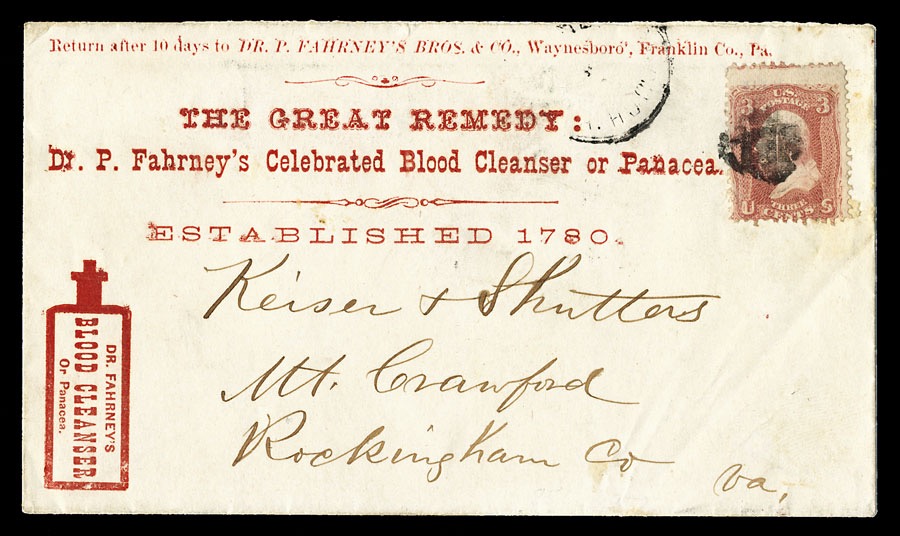 Return after 10 days to DR. P. FAHRNEY'S BROS. & CO., Waynesboro', Franklin Co., Pa.
THE GREAT REMEDY:
Dr. P. Fahrney's Celebrated Blood Cleanser or Panacea.
ESTABLISHED 1780.
U.S.
POSTAGE
3 3
THREE
U CENTS S
Keiser & Shutters
Mt. Crawford
Rockingham Co
Va,
DR. FAHRNEY'S
BLOOD CLEANSER
Or Panacea.